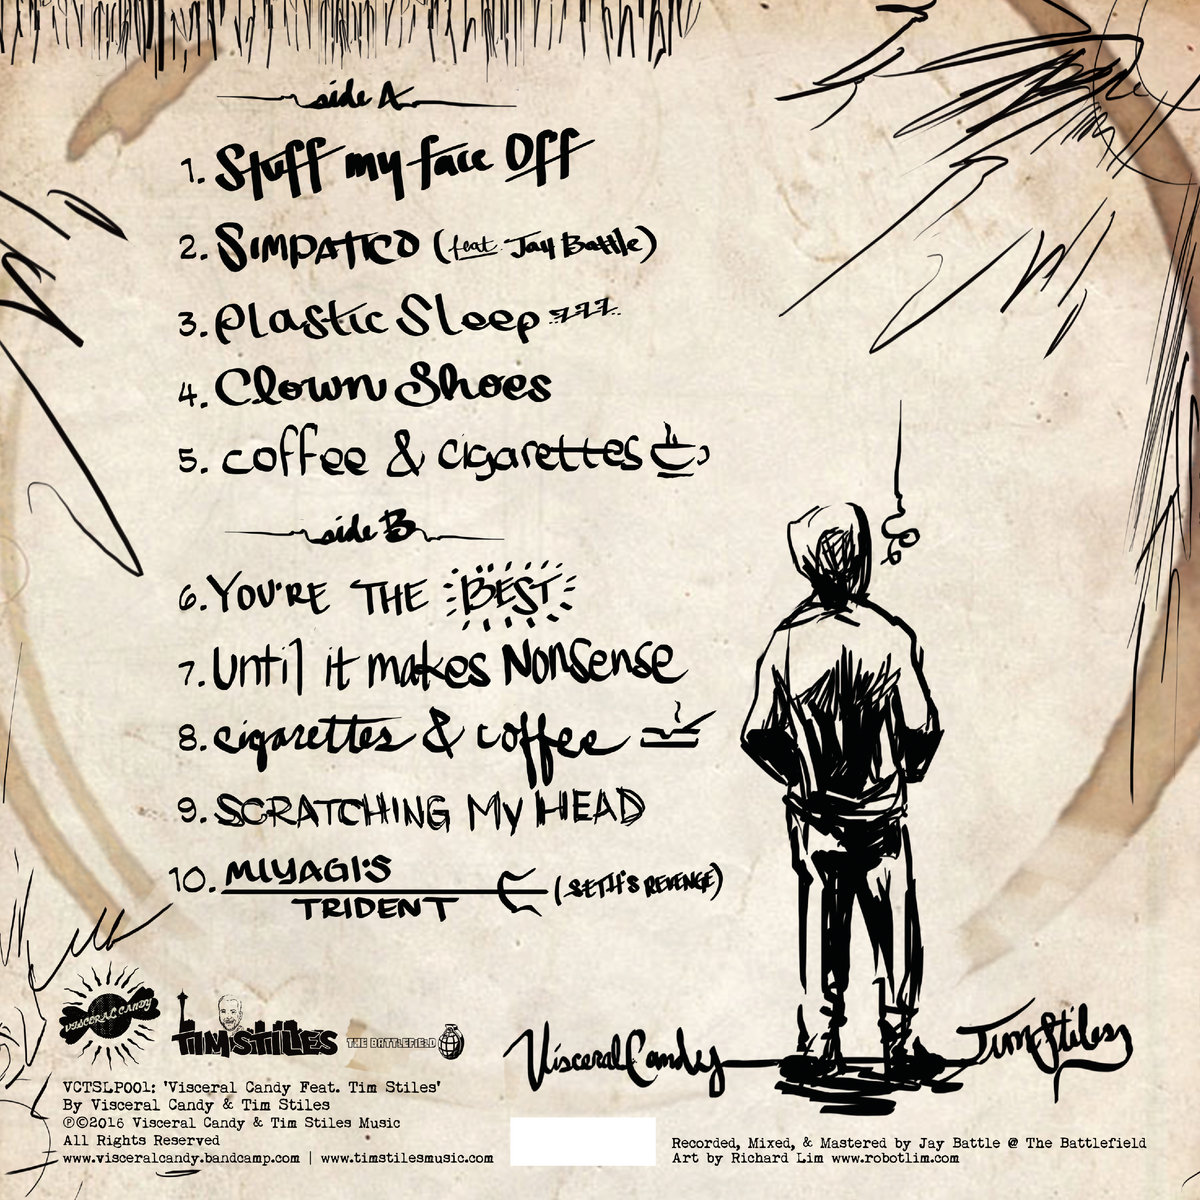 side A
1. Stuff my face Off
2. SIMPATICO (feat. Jay Battle)
3. Plastic Sleep zzz
4. Clown Shoes
5. coffee & cigarettes
side B
6. YOU'RE THE BEST
7. Until it makes Nonsense
8. cigarettes & coffee
9. SCRATCHING MY HEAD
10. MIYAGI'S
TRIDENT (SETH'S REVENGE)
VISCERAL CANDY
TIM STILES
THE BATTLEFIELD
Visceral Candy
Tim Stiles
VCTSLP001: 'Visceral Candy Feat. Tim Stiles'
By Visceral Candy & Tim Stiles
℗©2016 Visceral Candy & Tim Stiles Music
All Rights Reserved
www.visceralcandy.bandcamp.com | www.timstilesmusic.com
Recorded, Mixed, & Mastered by Jay Battle @ The Battlefield
Art by Richard Lim www.robotlim.com